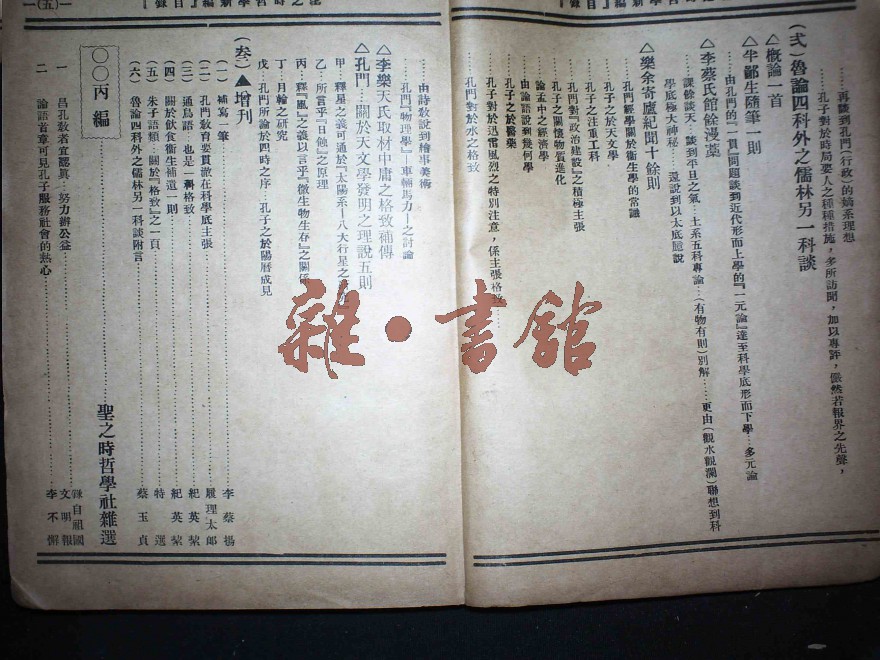 ……再談到孔門『行政』的嫡系理想
……孔子對於時局要人之種種措施，多所訪聞，加以專評，儼然若報界之先聲，
(弍)魯論四科外之儒林另一科談
△概論一首
△牛鄙生隨筆一則
由孔門的『一貫』問題談到近代形而上學的『一元論』達至科學底形而下學…多元論
△李蔡氏館餘漫藁
課餘談天…談到平旦之氣…土系五科專論…(有物有則)別解……更由(觀水觀瀾)聯想到科
學底極大神秘……還說到以太底臆說
△樂余寄廬紀聞十餘則
孔門經學關於衞生學的常識
孔子之於天文學
孔子之注重工科
孔門對『政治建設』之積極主張
孔子之關懷物質進化
論孟中之經濟學
由論語說到幾何學
孔子之於醫藥
孔子對於迅雷風烈之特別注意，係主張格致……
孔門對於水之格致
由詩敎說到繪事美術
孔門『物理學』—車輛馬力—之討論
△李樂天氏取材中庸之格致補傳
△孔門…關於天文學發明之理說五則
甲…釋星之義可通於『太陽系—八大行星之
乙…所言乎『日蝕』之原理
丙…釋『風』之義以言乎『微生物生存』之關係
丁…月輪之研究
戊…孔門所論於四時之序…孔子之於陽曆成見
(叁)▲增刊
(一) 補寫一筆……李蔡揚
(二) 孔門敎育要貫澈在科學底主張……履理太郞
(三) 通鳥語…也是一種格致……紀英棻
(四) 關於飮食衞生補遺一則……紀英棻
(五) 朱子語類…關於『格致』之一頁……特選
(六) 魯論四科外之儒林另一科談附言……蔡玉貞
○○丙編……聖之時哲學社雜選
一 昌孔敎者宜認眞…努力辦公益……錄自祖國文明報
二 論語首章可見孔子服務社會的熱心……李不懈
—(五)—
雜·書館